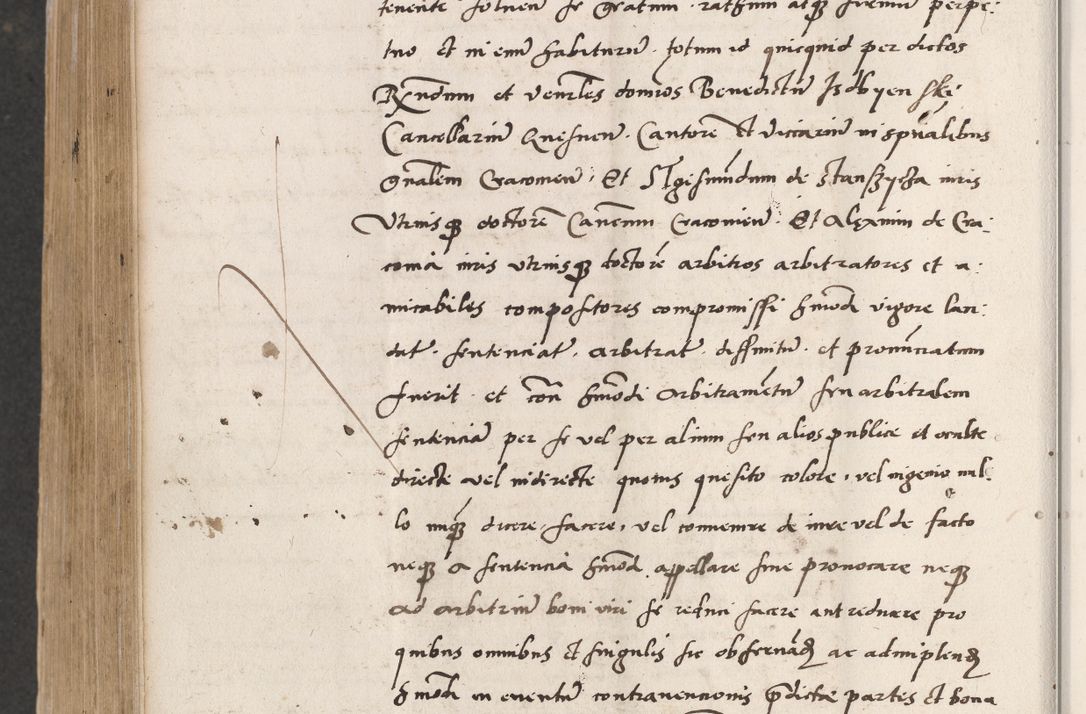 tenente solven se gratum rathum atq firmu perpe:
tuo et in eum habiturum totum id quicquid per dictos
Rxndum et venrles domios Benedictu Jzdbyen ski
Cancellariu Gnesnen. Cantore et viccariu in spualibus
gnalem Cracovien. Et Sigismundum de Stanszycza iuris
Utriusq doctore Canonicum Cracovien. Et Alexium de Cra:
covia iuris utriusq doctore arbitros arbitratores et a:
micabiles compositores compromissi hmodi vigore lau:
dat. sentenciat. arbitrat. diffinitu. et pronunciatum
fuerit et con hmodi arbitrametu seu arbitralem
sentencia per se vel per alium seu alios publice et occulte
directe vel indirecte quovis quesito colore, vel ingenio nul:
lo unq dicere, facere, vel convenire de iure vel de facto
neq a sentencia hmodi appellare sive provocare neq
ad arbitriu boni viri se reduci facere aut reducere pro
quibus omnibus et singulis sic observad ac adimplend
hmodi in eventu contravencionis pdicte partes et bona